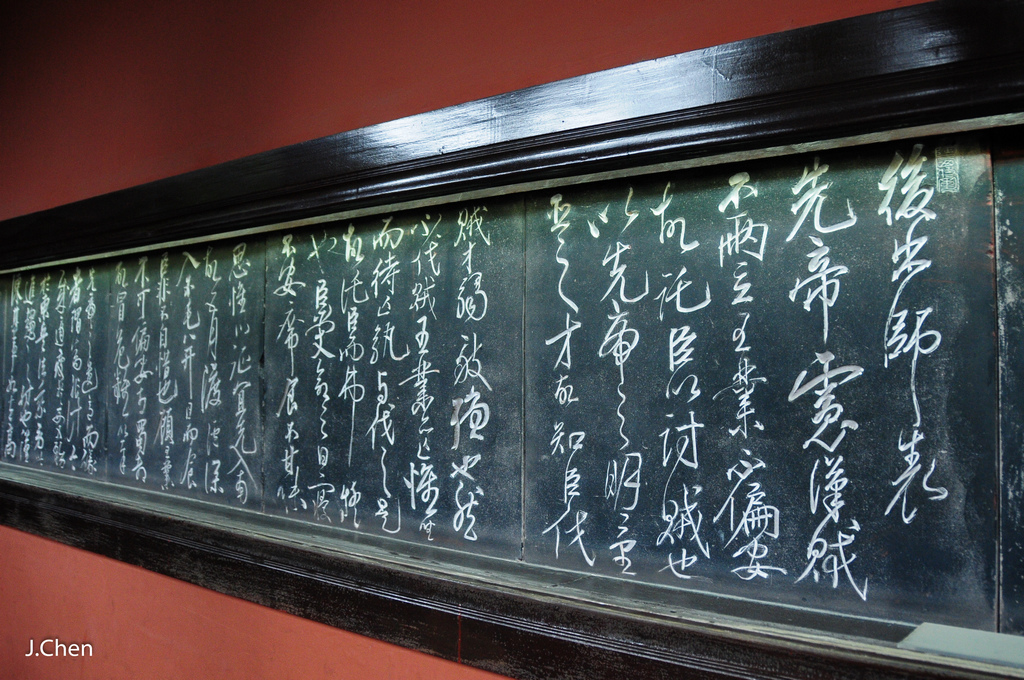 後出師表
先帝慮漢賊
不兩立王業不偏安
故託臣以討賊也
以先帝之明量
臣之才故知臣伐
賊才弱敵強也然
不伐賊王業亦亡惟坐
而待亡孰與伐之是
故託臣而弗疑
也臣受命之日寢
不安席食不甘味
思惟北征宜先入南
故五月渡瀘深
入不毛并日而食
臣非不自惜也顧王業
不可偏安於蜀都
故冒危難以奉
先帝之遺意而議
者謂為非計今
賊適疲於西又務
於東兵法乘勞此
進趨之時也謹陳
其事如左高
J.Chen